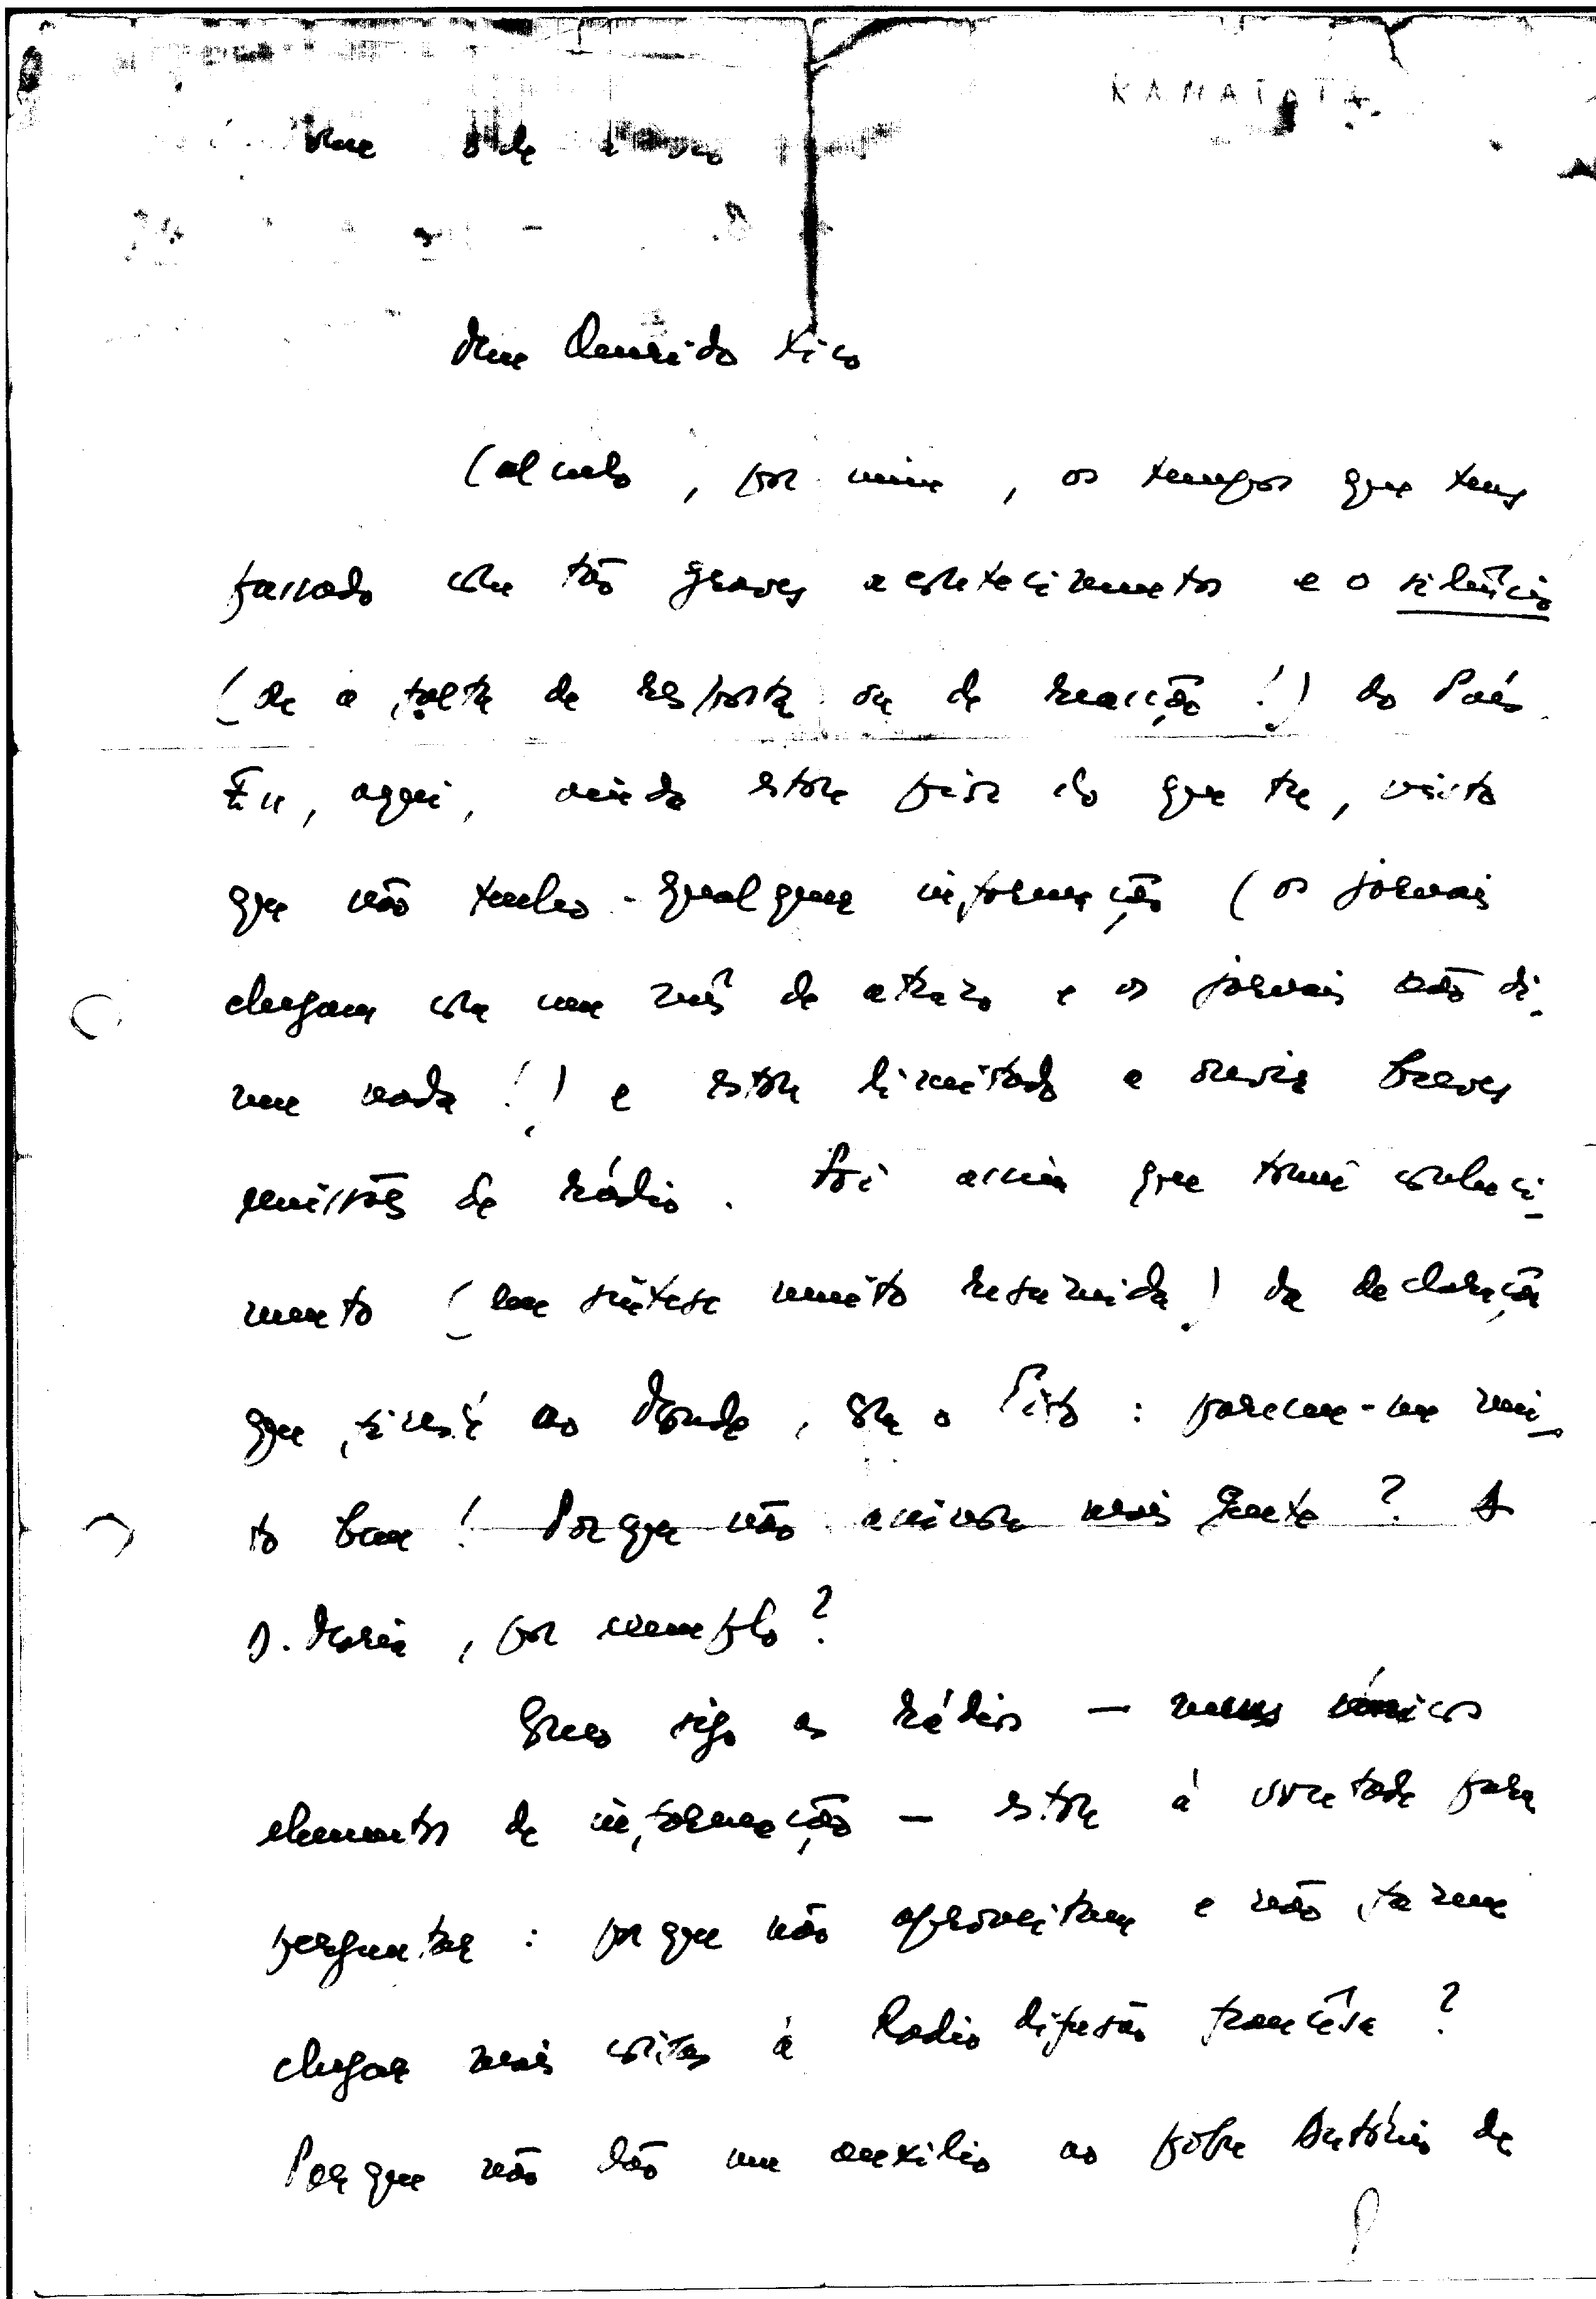 KAMATATA
Meu Querido Xico
Calculo, por mim, os tempos que tens
passado com tão graves acontecimentos e o silêncio
(ou a falta de resposta ou de reacção!) do País.
Eu, aqui, ainda estou pior do que tu, visto
que não tenho qualquer informação (os jornais
chegam com um mês de atrazo e os jornais não di-
zem nada!) e estou limitado a ouvir breves
emissões de rádio. Foi assim que tomei conheci-
mento (em síntese muito resumida) da declaração
que fizeste ao Monde, com o Pito: pareceu-me mui-
to bem! Porque não assinou mais gente? A
D. Maria, por exemplo?
Como sigo as rádios — meus únicos
elementos de informação — estou à vontade para
perguntar: porque não aproveitam e não fazem
chegar mais coisas à Radiodifusão francêsa?
Porque não dão um auxílio ao pobre António de